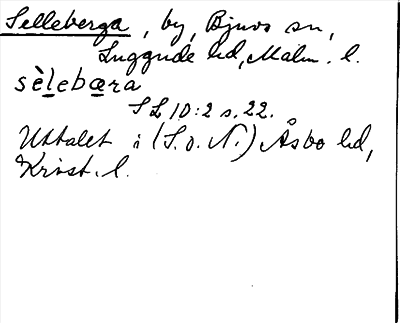 Selleberga, by, Bjuvs sn,
Luggude hd, Malm. l.
sèlebæra
SL 10:2 s. 22.
Uttalet i (S. o. N.) Åsbo hd,
Krist. l.